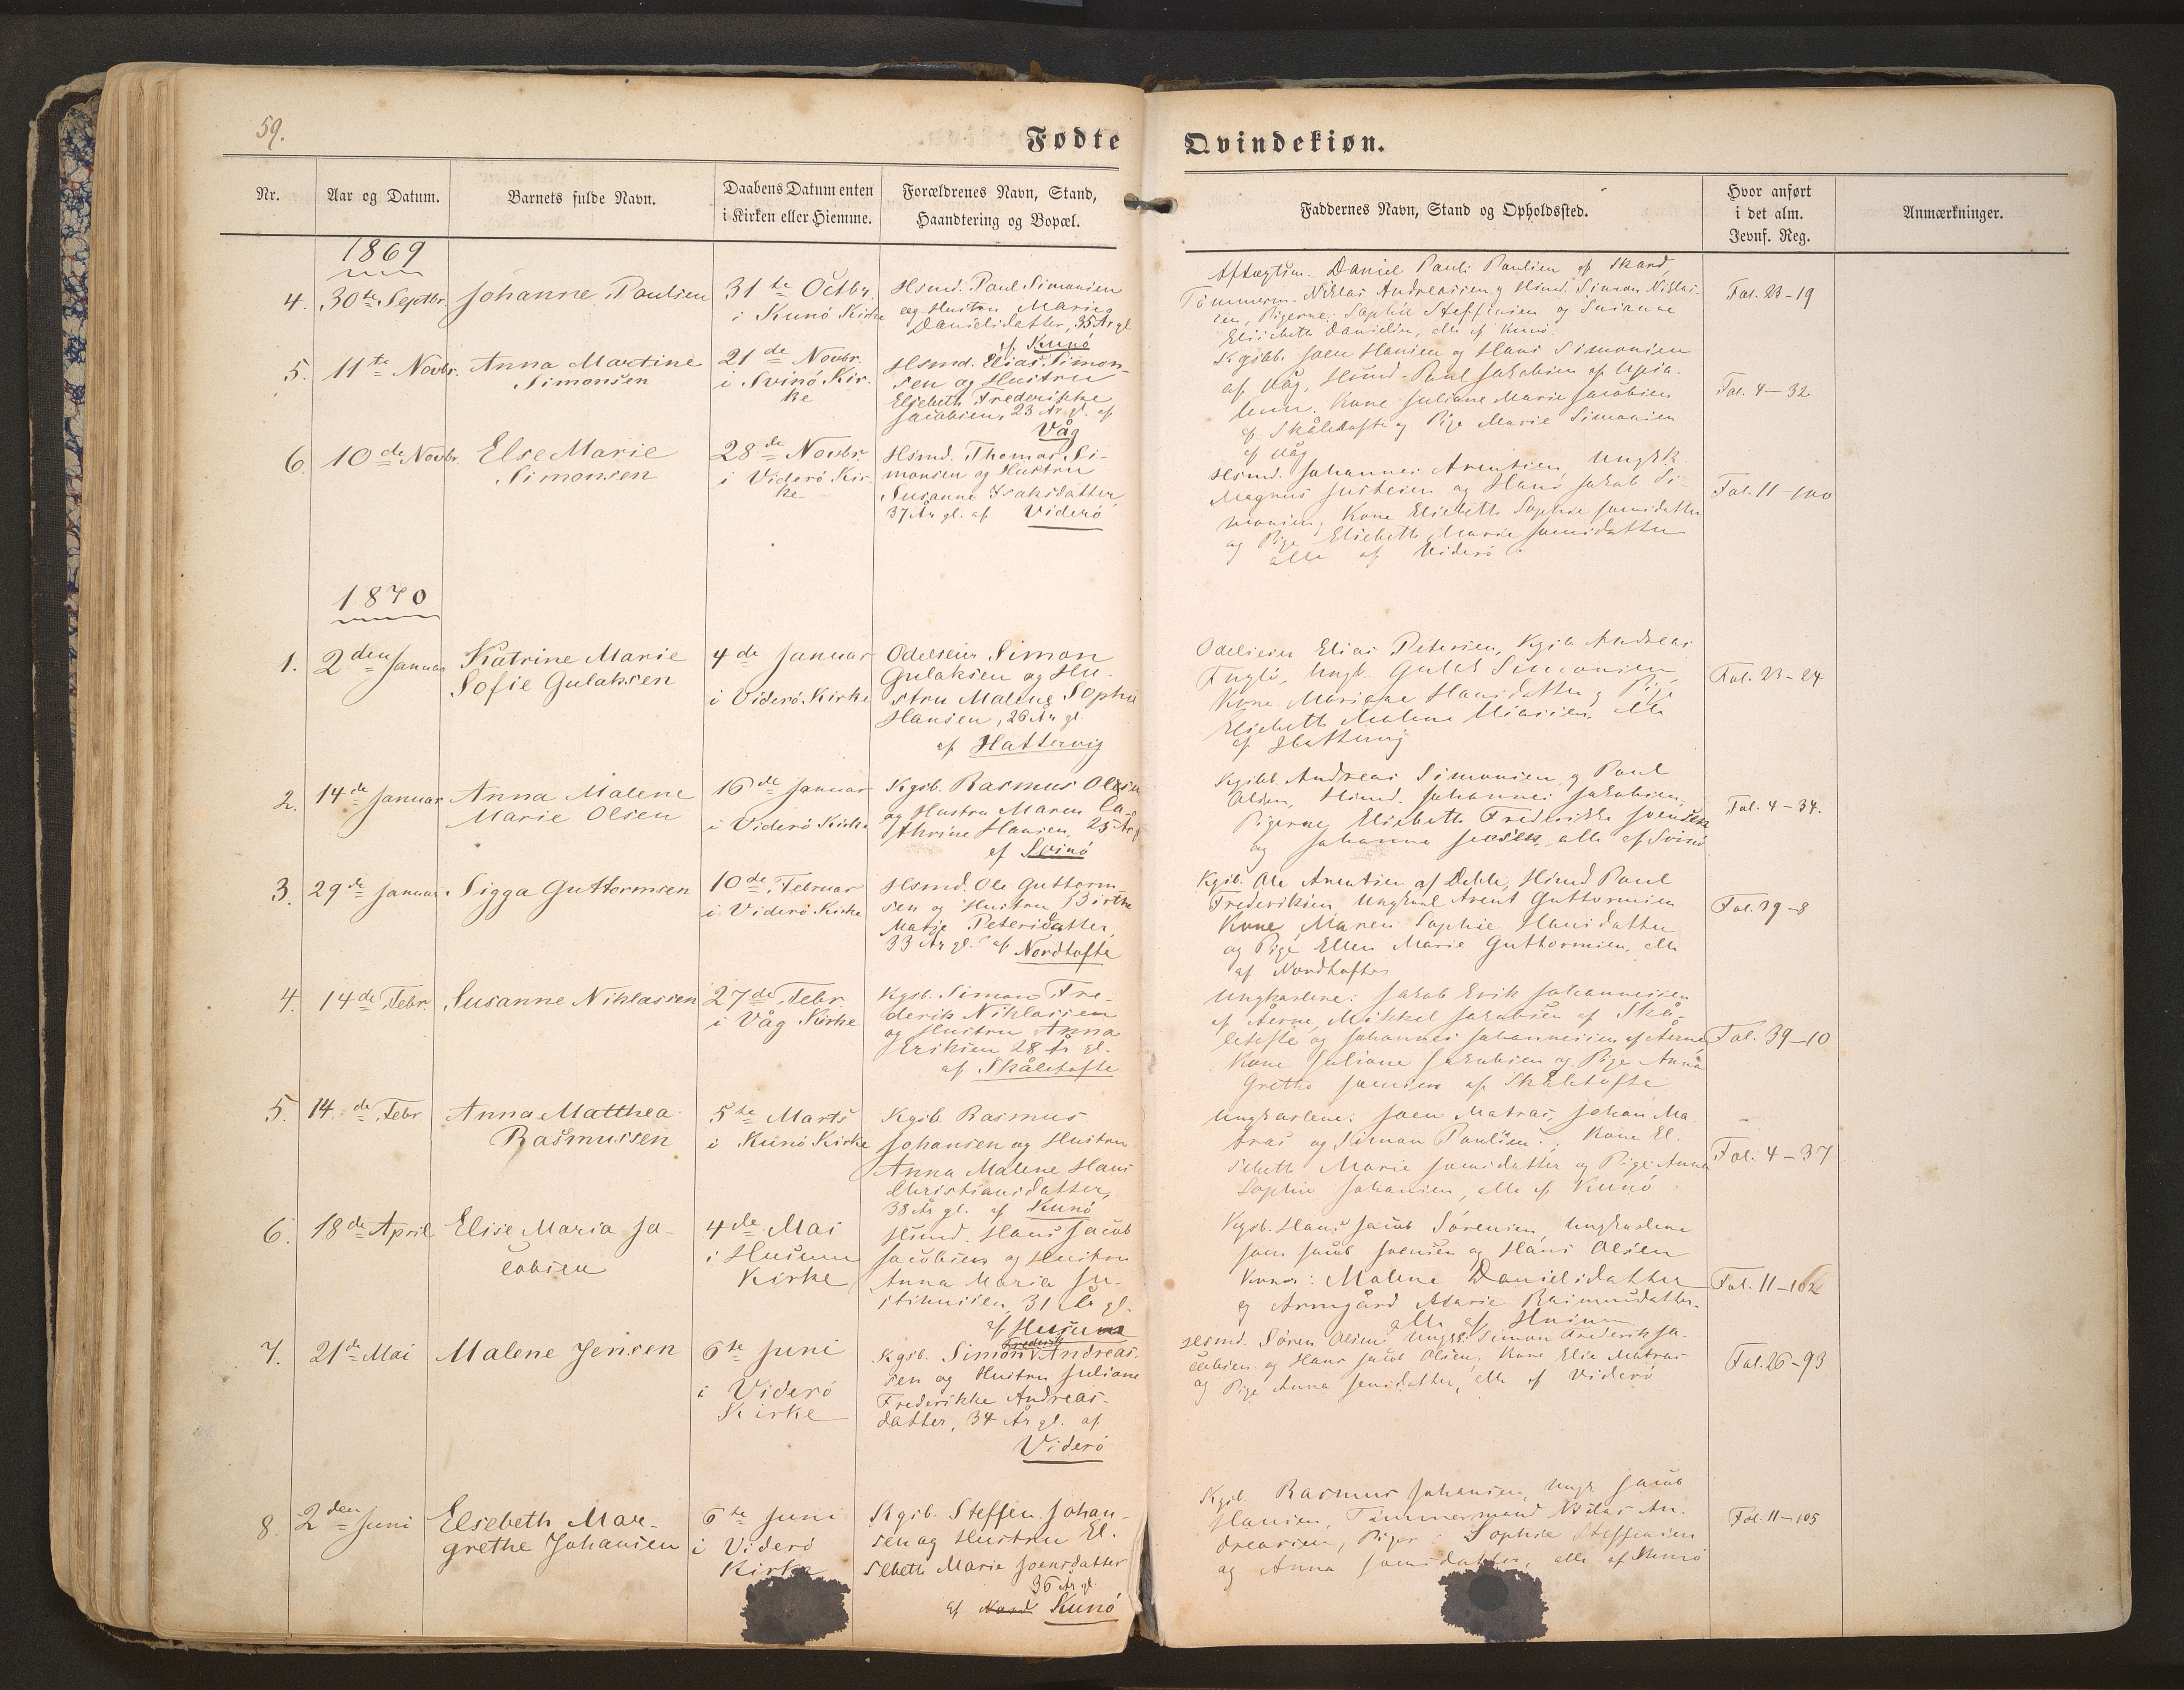 59.
Fødte
Qvindekiøn.
Nr.
Aar og Datum.
Barnets fulde Navn.
Daabens Datum enten
i Kirken eller Hiemme.
Forældrenes Navn, Stand,
Haandtering og Bopæl.
Faddernes Navn, Stand og Opholdssted.
Hvor anført
i det alm.
Jevnf. Reg.
Anmærkninger.
1869
4. 30te Septbr. Johanne Paulsen
31te Octbr.
i Kunö Kirke
Hsmd. Paul Simonsen
og Hustru Marie
Danielsdatter, 35 Ar gl.
af Kunö
Aftægtsm. Daniel Paul: Paulsen af Skard,
Tömmerm. Niklas Andreassen og Hsmd. Simon Niklas-
sen, Pigerne: Sophie Steffensen og Susanne
Elsebeth Danielsen, alle af Kunö.
Fol. 23-19
5. 11te Novbr. Anna Martine
Simonsen
21de Novbr.
i Svinö Kir-
ke
Hsmd. Elias Simon-
sen og Hustru
Elsebeth Frederikke
Jacobsen, 23 Ar gl. af
Våg
Kgsbb. Joen Hansen og Hans Simonsen
af Våg, Hsmd. Paul Jakobsen af
Kone Juliane Marie Jacobsen
af Skåletofte og Pige Marie Simonsen
af Våg
Fol. 4-32
6. 10de Novbr. Else Marie
Simonsen
28de Novbr.
i Viderö Kir-
ke
Hsmd. Thomas Si-
monsen og Hustru
Susanne Isaksdatter,
37 Ar gl. af Viderö
Hsmd. Johannes Arentsen, Ungk.
Magnus Justesen og Hans Jakob Si-
monsen, Kone Elsebeth Sophie Joensdatter
og Pige Elsebeth Marie Joensdatter
alle af Viderö
Fol. 11-100
1870
1. 2den Januar Katrine Marie
Sofie Gulaksen
4de Januar
i Viderö Kirke
Odelseier Simon
Gulaksen og Hu-
stru Malene Sophie
Hansen, 26 Ar gl.
af Hattervig
Odelseier Elias Petersen, Kgsb. Andreas
Fuglö, Ungk. Gulak Simonsen
Kone Mariane Hansdatter og Pige
Elsebeth Malene Eliassen, alle
af Hattervig
Fol. 23-24
2. 14de Januar Anna Malene
Marie Olsen
16de Januar
i Viderö Kirke
Kgsb. Rasmus Olsen
og Hustru Maren Ca-
thrine Hansen, 25 Ar gl
af Svinö
Kgsbb. Andreas Simonsen og Paul
Olsen, Hsmd. Johannes Jakobsen,
Pigerne Elsebeth Frederikke Joensen
og Johanne Joensen, alle af Svinö
Fol. 4-34.
3. 29de Januar. Sigga Guttormsen
10de Februar
i Viderö Kirke
Hsmd. Ole Guttorm-
sen og Hustru Birthe
Marie Petersdatter,
33 Ar gl. af Nordtofte
Kgsb. Ole Arentsen af Deble, Hsmd Paul
Frederiksen, Ungkarl Arent Guttormsen
Kone Maren Sophie Hansdatter
og Pige Ellen Marie Guttormsen, alle
af Nordtofte
Fol. 39-8
4. 14de Febr. Susanne Niklassen
27de Febr
i Våg Kirke
Kgsb. Simon Fre-
derik Niklassen
og Hustru Anna
Eriksen 28 År gl.
af Skåletofte
Ungkarlene: Jakob Erik Johannessen
af Aerne, Mikkel Jakobsen af Skå-
letofte og Johannes Johannessen af Aerne
Kone Juliane Jakobsen og Pige Anna
Grethe Joensen af Skåletofte
Fol. 39-10
5. 14de Febr Anna Matthea
Rasmussen
5te Marts
i Kunö Kirke
Kgsb. Rasmus
Johansen og Hustru
Anna Malene Hans
Christiansdatter,
38 År gl. af Kunö
Ungkarlene: Joen Matras, Johan Ma-
tras og Simon Paulsen., Kone El-
sebeth Marie Joensdatter og Pige Anna
Sophie Johansen, alle af Kunö
Fol. 4-37
6. 18de April Elise Maria Ja-
cobsen
4de Mai
i Husum
Kirke
Hsmd. Hans Jacob
Jacobsen og Hustru
Anna Maria Ju-
stinusen, 31 Ar gl.
af Husum
Kgsb. Hans Jacob Sörensen, Ungkarlene
Jens Jacob Joensen og Hans Olsen
Koner: Malene Danielsdatter
og Armgård Marie Rasmusdatter.
alle af Husum
Fol. 11-102
7. 21de Mai Malene Jensen
6te Juni
i Viderö
Kirke
Frederik
Kgsb. Simon Andreas-
sen og Hustru Juliane
Frederikke Andreas-
datter, 34 År gl. af
Viderö
Hsmd. Sören Olsen Ungkk: Simon Frederik Ja-
cobsen og Hans Jacob Olsen, Kone Elie Matras
og Pige Anna Jensdatter, alle af Viderö
Fol. 26-93
8. 2den Juni Elsebeth Mar-
grethe Johansen
6te Juni
i Viderö
Kirke
Kgsb. Steffen Johan-
sen og Hustru El-
sebeth Marie Joensdatter
36 Ar gl.
af Kunö
Kgsb. Rasmus Johansen, Ungk Jacob
Hansen, Tömmermand Niklas An-
dreasen, Piger: Sophie Steffensen
og Anna Joensdatter, alle af Kunö
Fol. 11-105